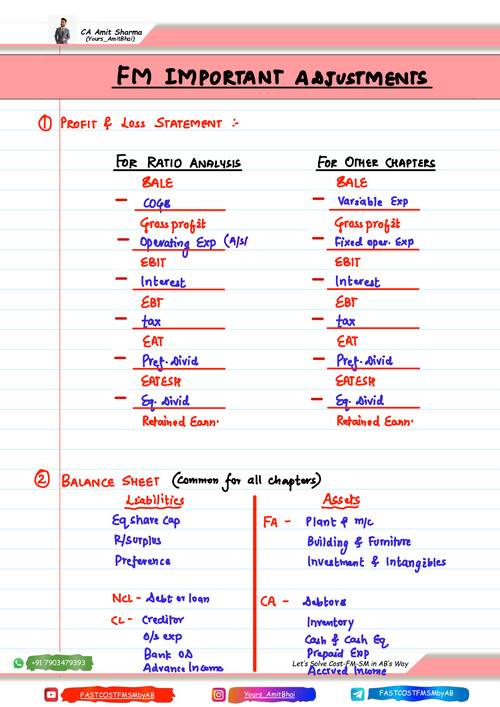 CA Amit Sharma
(Yours_AmitBhai)
FM IMPORTANT ADJUSTMENTS
① PROFIT & LOSS STATEMENT :-
FOR RATIO ANALYSIS
SALE
- COGS
Gross profit
- Operating Exp (A/S/
EBIT
- Interest
EBT
- tax
EAT
- Pref. Divid
EATESH
- Eq. Divid
Retained Earn.
FOR OTHER CHAPTERS
SALE
- Variable Exp
Gross profit
- Fixed oper. Exp
EBIT
- Interest
EBT
- tax
EAT
- Pref. Divid
EATESH
- Eq. Divid
Retained Earn.
② BALANCE SHEET (Common for all chapters)
Liabilities
Eq share cap
R/surplus
Preference
NCL - Debt or loan
CL - Creditor
O/s exp
Bank OD
Advance Income
Assets
FA - Plant & m/c
Building & Furniture
Investment & Intangibles
CA - Debtors
Inventory
Cash & Cash Eq
Prepaid Exp
Accrued Income
+91 7903479393
Let's Solve Cost-FM-SM in AB's Way
FASTCOSTFMSMbyAB
Yours_AmitBhai
FASTCOSTFMSMbyAB